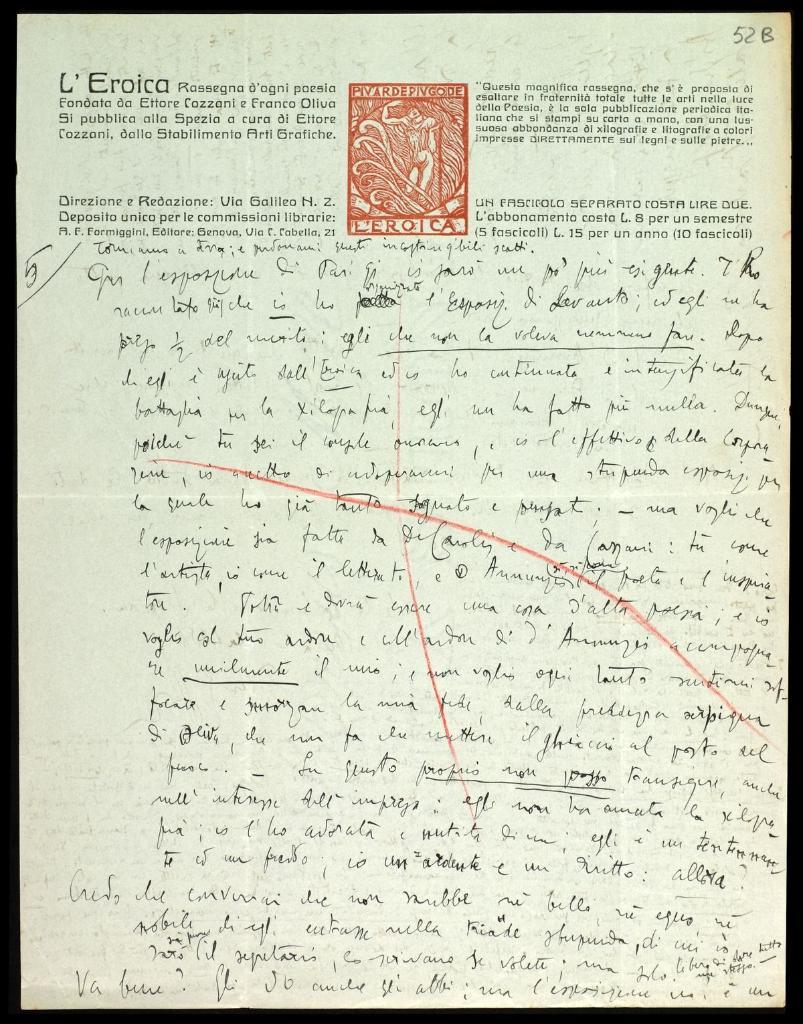 52B
L'Eroica Rassegna d'ogni poesia
Fondata da Ettore Cozzani e Franco Oliva
Si pubblica alla Spezia a cura di Ettore
Cozzani, dallo Stabilimento Arti Grafiche.
PIVARDEPIVGODE
L'EROICA
"Questa magnifica rassegna, che s'è proposta di
esaltare in fraternità totale tutte le arti nella luce
della Poesia, è la sola pubblicazione periodica ita-
liana che si stampi su carta a mano, con una lus-
suosa abbondanza di xilografie e litografie a colori
impresse DIRETTAMENTE sui legni e sulle pietre...
Direzione e Redazione: Via Galileo N. 2.
Deposito unico per le commissioni librarie:
A. F. Formiggini, Editore: Genova, Via C. Cabella, 21
UN FASCICOLO SEPARATO COSTA LIRE DUE.
L'abbonamento costa L. 8 per un semestre
(5 fascicoli) L. 15 per un anno (10 fascicoli)
5/
Torniamo a ; e perdonami questi scatti.
Per l'esposizione di io sarò un po' più esigente. T'ho
raccontato già che io ho organizzato l'Esposiz. di Levanto; ed egli ne ha
preso ½ del merito: egli che non la voleva nemmeno fare. Dopo
che egli è uscito dall'Eroica ed io ho continuata e intensificata la
battaglia per la xilografia, egli non ha fatto più nulla. Dunque,
poiché tu sei il onorario, e io l'effettivo della Corpora
zione, io accetto di adoperarmi per una stupenda esposiz. per
la quale ho già tanto sognato e pensato; — ma voglio che
l'esposizione sia fatta da De Carolis e da Cozzani: tu come
l'artista, io come il letterato, e D'Annunzio il poeta e l'inspira
tore. Potrà e dovrà essere una cosa d'alta poesia; e io
voglio col tuo ardore e coll'ardore di D'Annunzio accompagna
re umilmente il mio; e non voglio ogni tanto sentirmi sof-
focare e smorzare la mia fede, dalla freddezza
di Oliva, che non fa che mettere il ghiaccio al posto del
fuoco. — Su questo proprio non posso transigere, anche
nell'interesse dell'impresa: egli non ha amata la xilogra
fia; io l'ho adorata e nutrita di me; egli è un
te ed un freddo; io un ardente e un diritto: allora?
Credo che converrai che non sarebbe né bello, né equo, né
nobile che egli entrasse nella triade stupenda, di cui io
sarò (il segretario, lo scrivano se volete; ma solo libero di dare tutto
me stesso.
Va bene? Gli do anche gli albi; ma l'esposizione no: è un